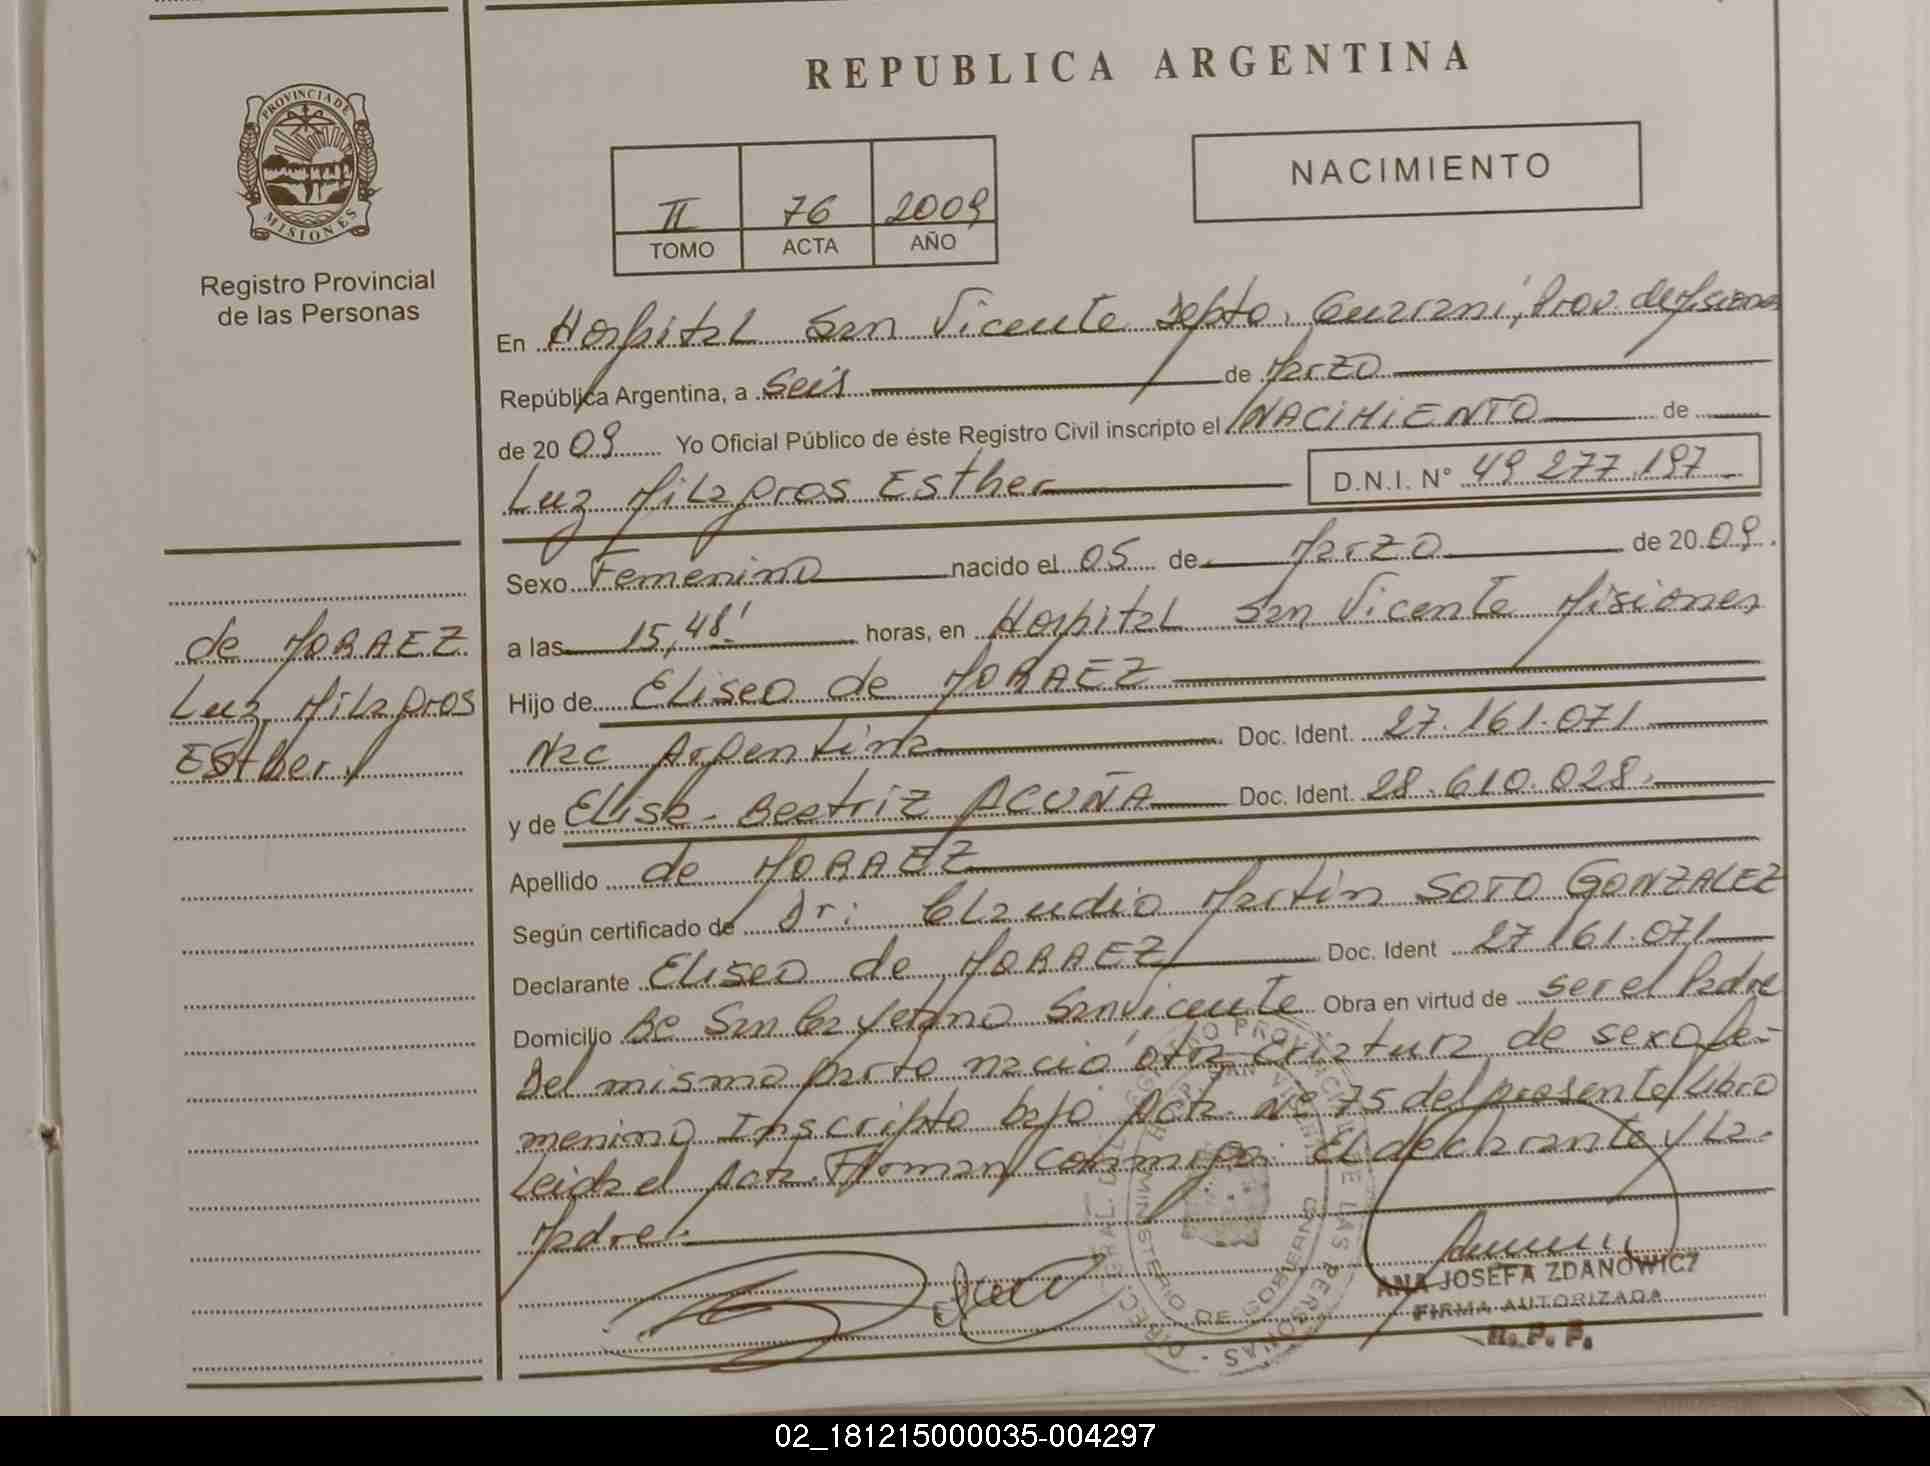 REPUBLICA ARGENTINA
PROVINCIA DE
MISIONES
Registro Provincial
de las Personas
II 76 2009
TOMO ACTA AÑO
NACIMIENTO
En Hospital San Vicente Depto. Guarani, Prov. de Misiones
República Argentina, a Seis de Marzo
de 20 09 Yo Oficial Público de éste Registro Civil inscripto el NACIMIENTO de
Luz Milagros Esther D.N.I. N° 49 277.197
Sexo Femenino nacido el 05 de Marzo de 20 09.
a las 15,48' horas, en Hospital San Vicente Misiones
Hijo de Eliseo de MORAEZ
Nac Argentina Doc. Ident. 27.161.071
y de Elisa Beatriz ACUÑA Doc. Ident. 28.610.028.
Apellido de MORAEZ
Según certificado de Dr: Claudio Martin SOTO GONZALEZ
Declarante Eliseo de MORAEZ Doc. Ident 27 161.071
Domicilio Bº San Cayetano San Vicente Obra en virtud de ser el Padre
Del mismo parto nació otra criatura de sexo fe-
menino Inscripto bajo Acta Nº 75 del presente Libro
Leida el Acta Firman conmigo El declarante y La
Madre.
de MORAEZ
Luz Milagros
Esther
ANA JOSEFA ZDANOWICZ
FIRMA AUTORIZADA
R. P. P.
MINISTERIO DE GOBIERNO
02_181215000035-004297